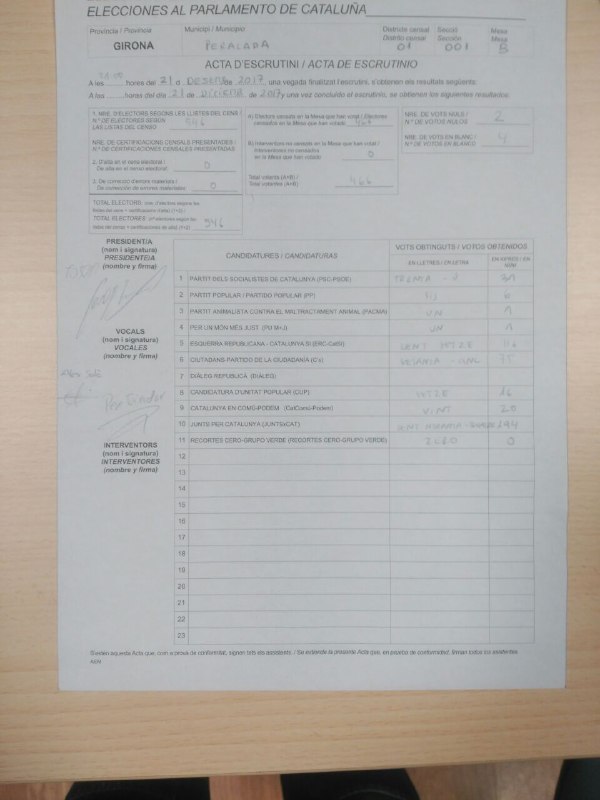 ELECCIONES AL PARLAMENTO DE CATALUÑA
Província / Provincia
GIRONA
Municipi / Municipio
PERALADA
Districte censal
Distrito censal
01
Secció
Sección
001
Mesa
Mesa
B
ACTA D'ESCRUTINI / ACTA DE ESCRUTINIO
A les hores del 21 d DESEMBRE de 2017, una vegada finalitzat l'escrutini, s'obtenen els resultats següents:
A las horas del día 21 de DICIEMBRE de 2017 y una vez concluido el escrutinio, se obtienen los siguientes resultados:
1. NRE. D'ELECTORS SEGONS LES LLISTES DEL CENS /
N.º DE ELECTORES SEGÚN
LAS LISTAS DEL CENSO
546
NRE. DE CERTIFICACIONS CENSALS PRESENTADES /
N.º DE CERTIFICACIONES CENSALES PRESENTADAS
2. D'alta en el nomenclàtor /
De alta en el censo electoral
0
3. De correcció d'errors materials /
De corrección de errores materiales
0
TOTAL ELECTORS
TOTAL ELECTORES
546
A) Electors censats en la Mesa que han votat / Electores
censados en la Mesa que han votado
B) Interventors no censats en la Mesa que han votat /
Interventores no censados
en la Mesa que han votado
0
Total votants (A+B) /
Total votantes (A+B)
466
NRE. DE VOTS NULS /
N.º DE VOTOS NULOS
2
NRE. DE VOTS EN BLANC /
N.º DE VOTOS EN BLANCO
4
PRESIDENT/A
(nom i signatura)
PRESIDENTE/A
(nombre y firma)
VOCALS
(nom i signatura)
VOCALES
(nombre y firma)
INTERVENTORS
(nom i signatura)
INTERVENTORES
(nombre y firma)
CANDIDATURES / CANDIDATURAS
VOTS OBTINGUTS / VOTOS OBTENIDOS
EN LLETRES / EN LETRA
EN XIFRES / EN NÚM
1 PARTIT DELS SOCIALISTES DE CATALUNYA (PSC-PSOE)
2 PARTIT POPULAR / PARTIDO POPULAR (PP) 6
3 PARTIT ANIMALISTA CONTRA EL MALTRACTAMENT ANIMAL (PACMA) UN 1
4 PER UN MÓN MÉS JUST (PUM+J) UN 1
5 ESQUERRA REPUBLICANA - CATALUNYA SÍ (ERC-CatSí) CENT SETZE 116
6 CIUTADANS-PARTIDO DE LA CIUDADANÍA (C's) 75
7 DIÀLEG REPUBLICÀ (DIÀLEG)
8 CANDIDATURA D'UNITAT POPULAR (CUP) SETZE 16
9 CATALUNYA EN COMÚ-PODEM (CatComú-Podem) VINT 20
10 JUNTS PER CATALUNYA (JUNTSxCAT) CENT NORANTA-QUATRE 194
11 RECORTES CERO-GRUPO VERDE (RECORTES CERO-GRUPO VERDE) ZERO 0
12
13
14
15
16
17
18
19
20
21
22
23
S'estén aquesta Acta que, com a prova de conformitat, signen tots els assistents. / Se extiende la presente Acta que, en prueba de conformidad, firman todos los asistentes